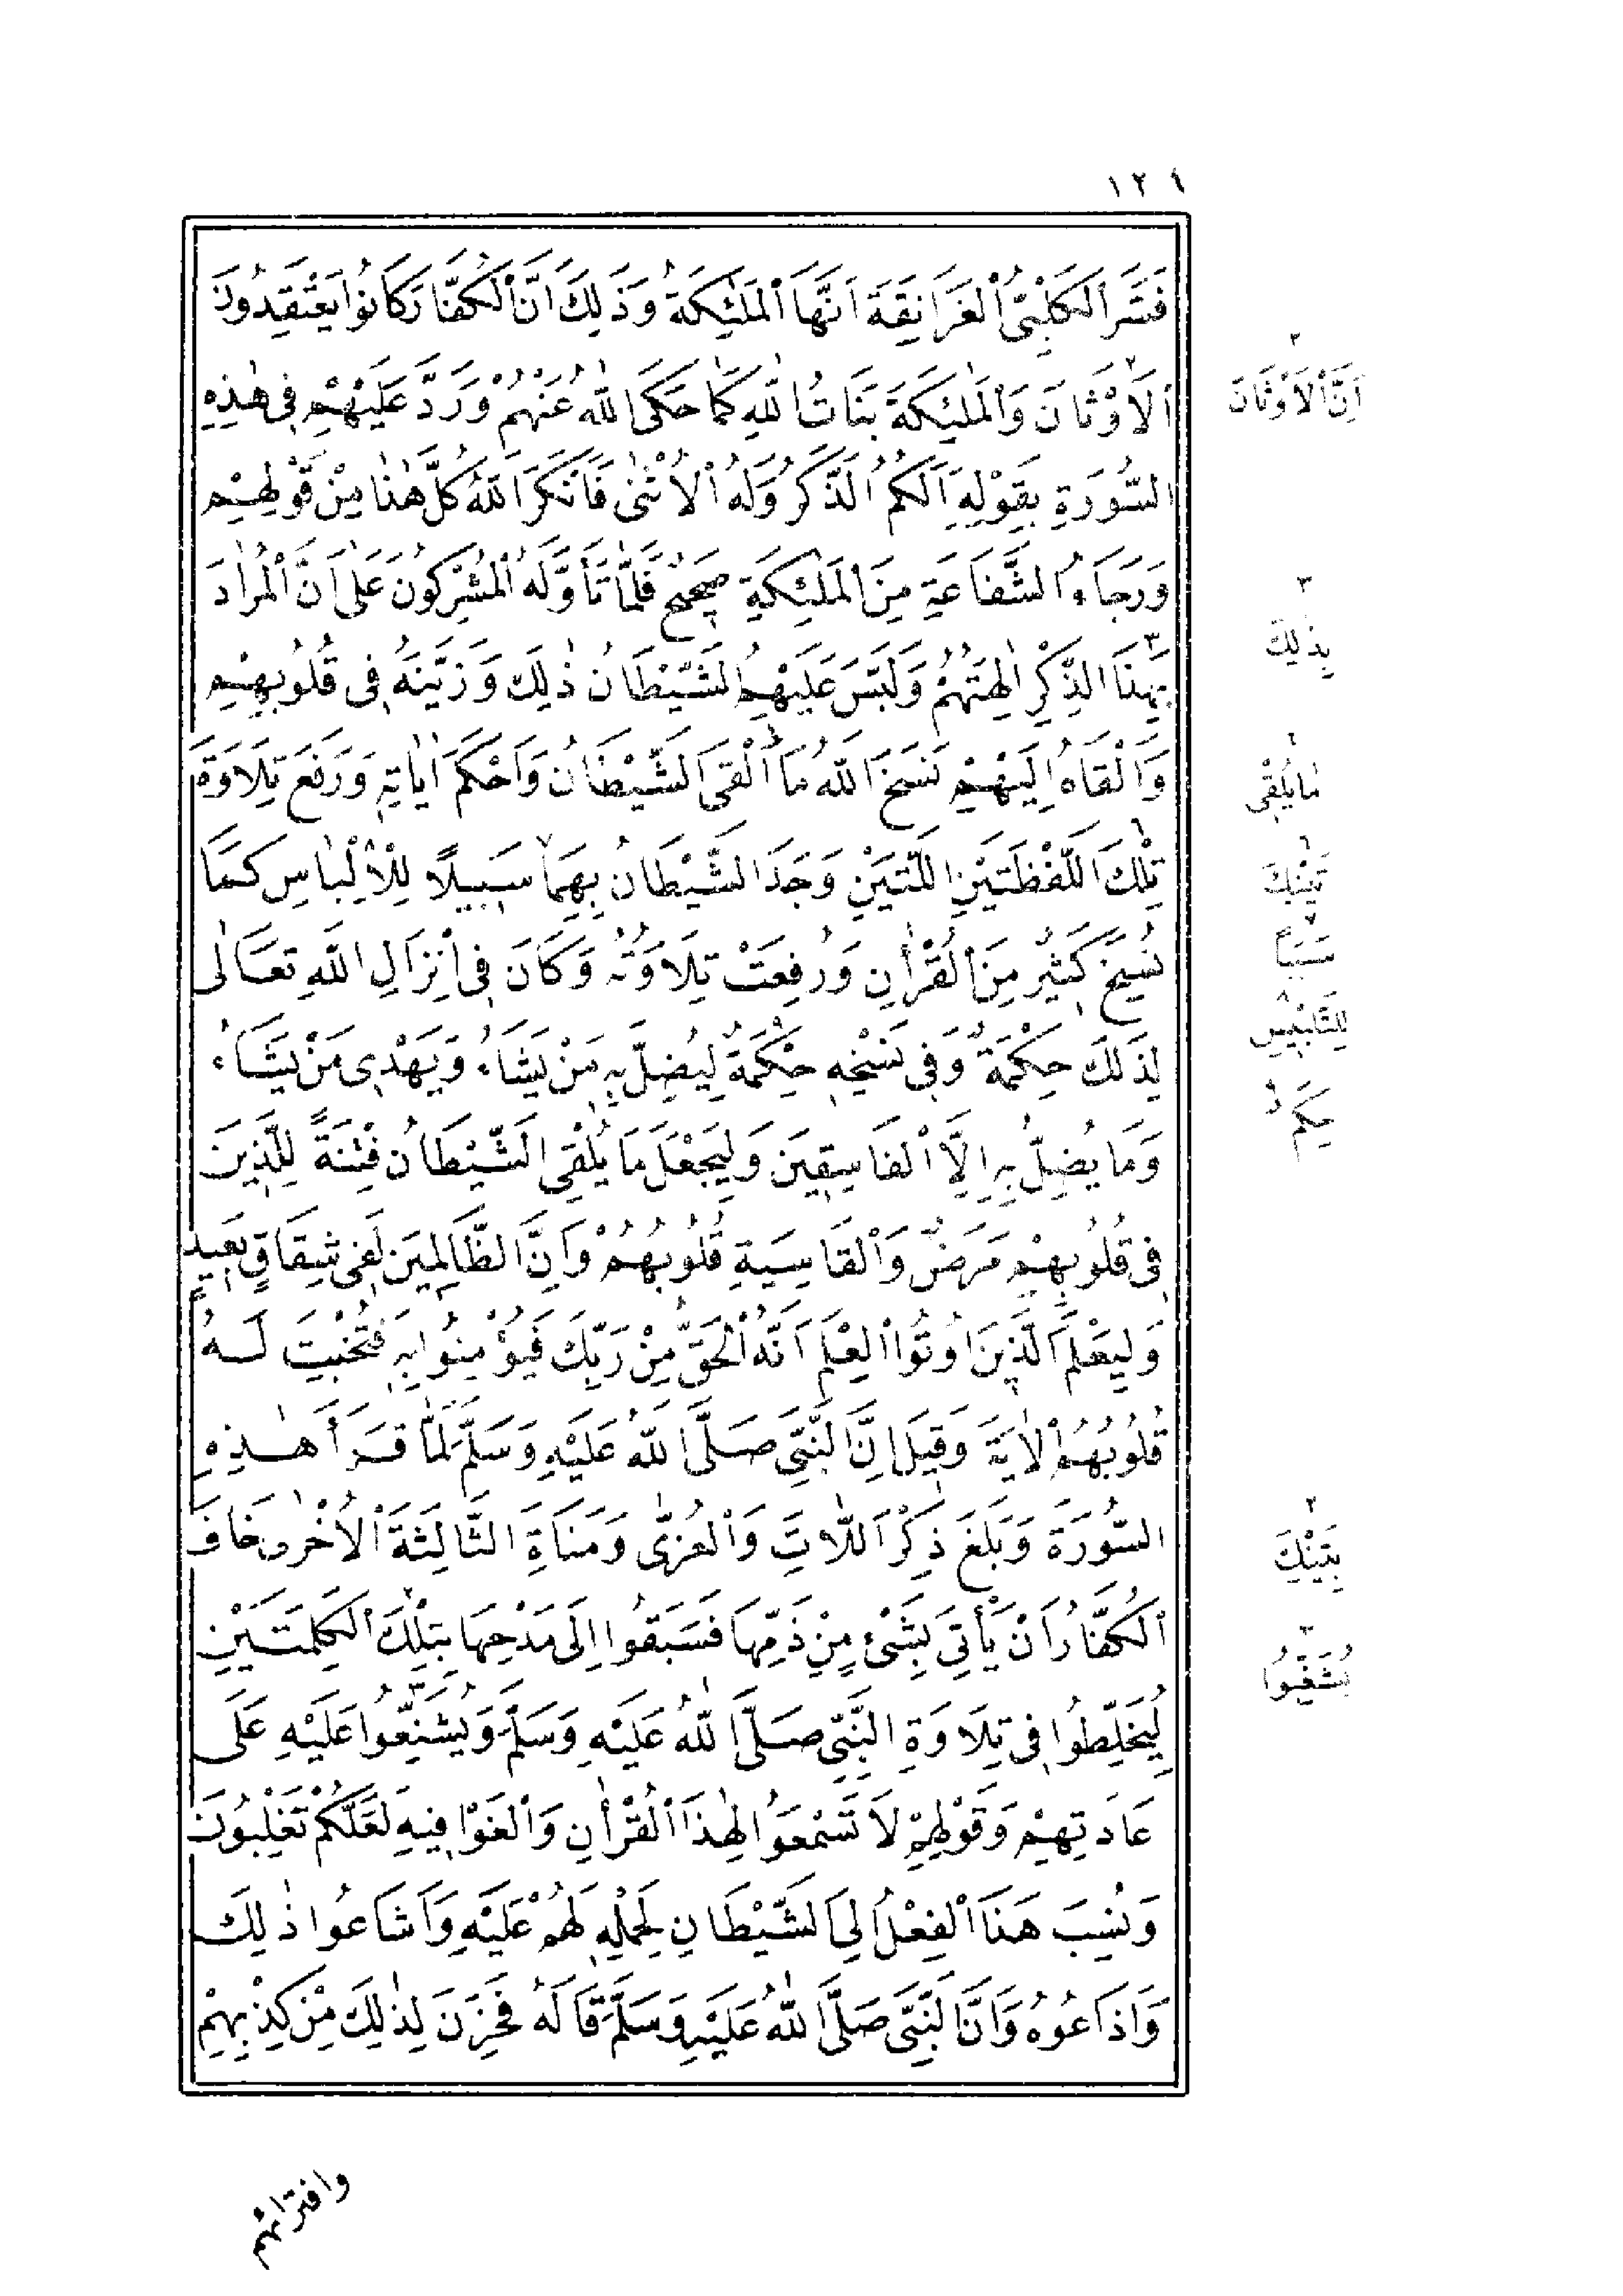 ١٢٦
فَسَّرَ ٱلْكَلْبِىُّ ٱلْغَرَانِقَةَ اَنَّهَا ٱلْمَلٰئِكَةُ وَذَلِكَ اَنَّ ٱلْكُفَّارَ كَانُوا يَعْتَقِدُونَ
ٱلْاَوْثَانَ وَٱلْمَلٰئِكَةَ بَنَاتُ اللّٰهِ كَمَا حَكَى اللّٰهُ عَنْهُمْ وَرَدَّ عَلَيْهِمْ فِى هٰذِهِ
السُّورَةِ بِقَوْلِهِ اَلَكُمُ الذَّكَرُ وَلَهُ ٱلْاُنْثٰى فَاَنْكَرَ اللّٰهُ كُلَّ هٰذَا مِنْ قَوْلِهِمْ
وَرَجَاءُ الشَّفَاعَةِ مِنَ ٱلْمَلٰئِكَةِ صَحِيحٌ فَلَمَّا تَأَوَّلَهُ ٱلْمُشْرِكُونَ عَلٰى اَنَّ ٱلْمُرَادَ
بِهٰذَا الذِّكْرِ اٰلِهَتُهُمْ وَلَبَّسَ عَلَيْهِمُ الشَّيْطَانُ ذٰلِكَ وَزَيَّنَهُ فِى قُلُوبِهِمْ
وَاَلْقَاهُ اِلَيْهِمْ نَسَخَ اللّٰهُ مَا اَلْقَى الشَّيْطَانُ وَاَحْكَمَ اٰيَاتِهِ وَرَفَعَ تِلَاوَةَ
تِلْكَ اللَّفْظَتَيْنِ اللَّتَيْنِ وَجَدَ الشَّيْطَانُ بِهِمَا سَبِيلًا لِلْاِلْبَاسِ كَمَا
نُسِخَ كَثِيرٌ مِنَ ٱلْقُرْاٰنِ وَرُفِعَتْ تِلَاوَتُهُ وَكَانَ فِى اِنْزَالِ اللّٰهِ تَعَالٰى
لِذَلِكَ حِكْمَةٌ وَفِى نَسْخِهِ حِكْمَةٌ لِيُضِلَّ بِهِ مَنْ يَشَاءُ وَيَهْدِى مَنْ يَشَاءُ
وَمَا يُضِلُّ بِهِ اِلَّا ٱلْفَاسِقِينَ وَلِيَجْعَلَ مَا يُلْقِى الشَّيْطَانُ فِتْنَةً لِلَّذِينَ
فِى قُلُوبِهِمْ مَرَضٌ وَٱلْقَاسِيَةِ قُلُوبُهُمْ وَاِنَّ الظَّالِمِينَ لَفِى شِقَاقٍ بَعِيدٍ
وَلِيَعْلَمَ الَّذِينَ اُوتُوا ٱلْعِلْمَ اَنَّهُ ٱلْحَقُّ مِنْ رَبِّكَ فَيُؤْمِنُوا بِهِ فَتُخْبِتَ لَهُ
قُلُوبُهُمُ ٱلْاٰيَةَ وَقِيلَ اِنَّ النَّبِىَّ صَلَّى اللّٰهُ عَلَيْهِ وَسَلَّمَ لَمَّا قَرَأَ هٰذِهِ
السُّورَةَ وَبَلَغَ ذِكْرَ اللَّاتَ وَٱلْعُزّٰى وَمَنَاةَ الثَّالِثَةَ ٱلْاُخْرٰى خَافَ
ٱلْكُفَّارُ اَنْ يَأْتِىَ بِشَىْءٍ مِنْ ذَمِّهَا فَسَبَقُوا اِلَى مَدْحِهَا بِتِلْكَ ٱلْكَلِمَتَيْنِ
لِيُخَلِّطُوا فِى تِلَاوَةِ النَّبِىِّ صَلَّى اللّٰهُ عَلَيْهِ وَسَلَّمَ وَيُشَنِّعُوا عَلَيْهِ عَلَى
عَادَتِهِمْ وَقَوْلِهِمْ لَا تَسْمَعُوا لِهٰذَا ٱلْقُرْاٰنِ وَٱلْغَوْا فِيهِ لَعَلَّكُمْ تَغْلِبُونَ
وَنُسِبَ هَذَا ٱلْفِعْلُ اِلَى الشَّيْطَانِ لِحَمْلِهِ لَهُمْ عَلَيْهِ وَاَشَاعُوا ذٰلِكَ
وَاَذَاعُوهُ وَاَنَّ النَّبِىَّ صَلَّى اللّٰهُ عَلَيْهِ وَسَلَّمَ قَالَهُ فَحَزِنَ لِذٰلِكَ مِنْ كَذِبِهِمْ
وافترائهم
اَنَّ ٱلْاَوْثَانَ
٣
بِذٰلِكَ
٦
مَا يُلْقِى
تَيْنِكَ
٧
سَبَبًا
٨
لِلتَّلْبِيسِ
حِكَمٌ
٢
بِتَيْنِكَ